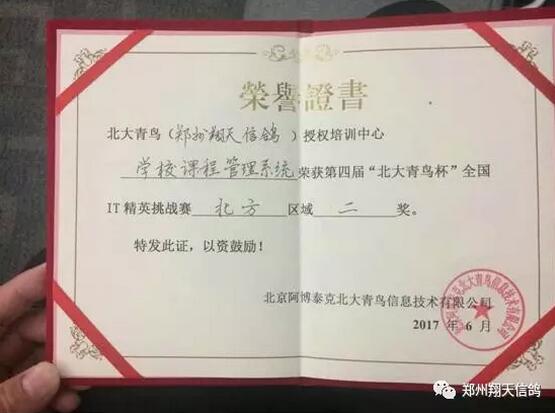 榮譽證書
北大青鸟(郑州翔天信鸽)授权培训中心
学校课程管理系统荣获第四届“北大青鸟杯”全国
IT精英挑战赛北方区域二奖。
特发此证，以资鼓励！
北京阿博泰克北大青鸟信息技术有限公司
2017 年 6 月
郑州翔天信鸽